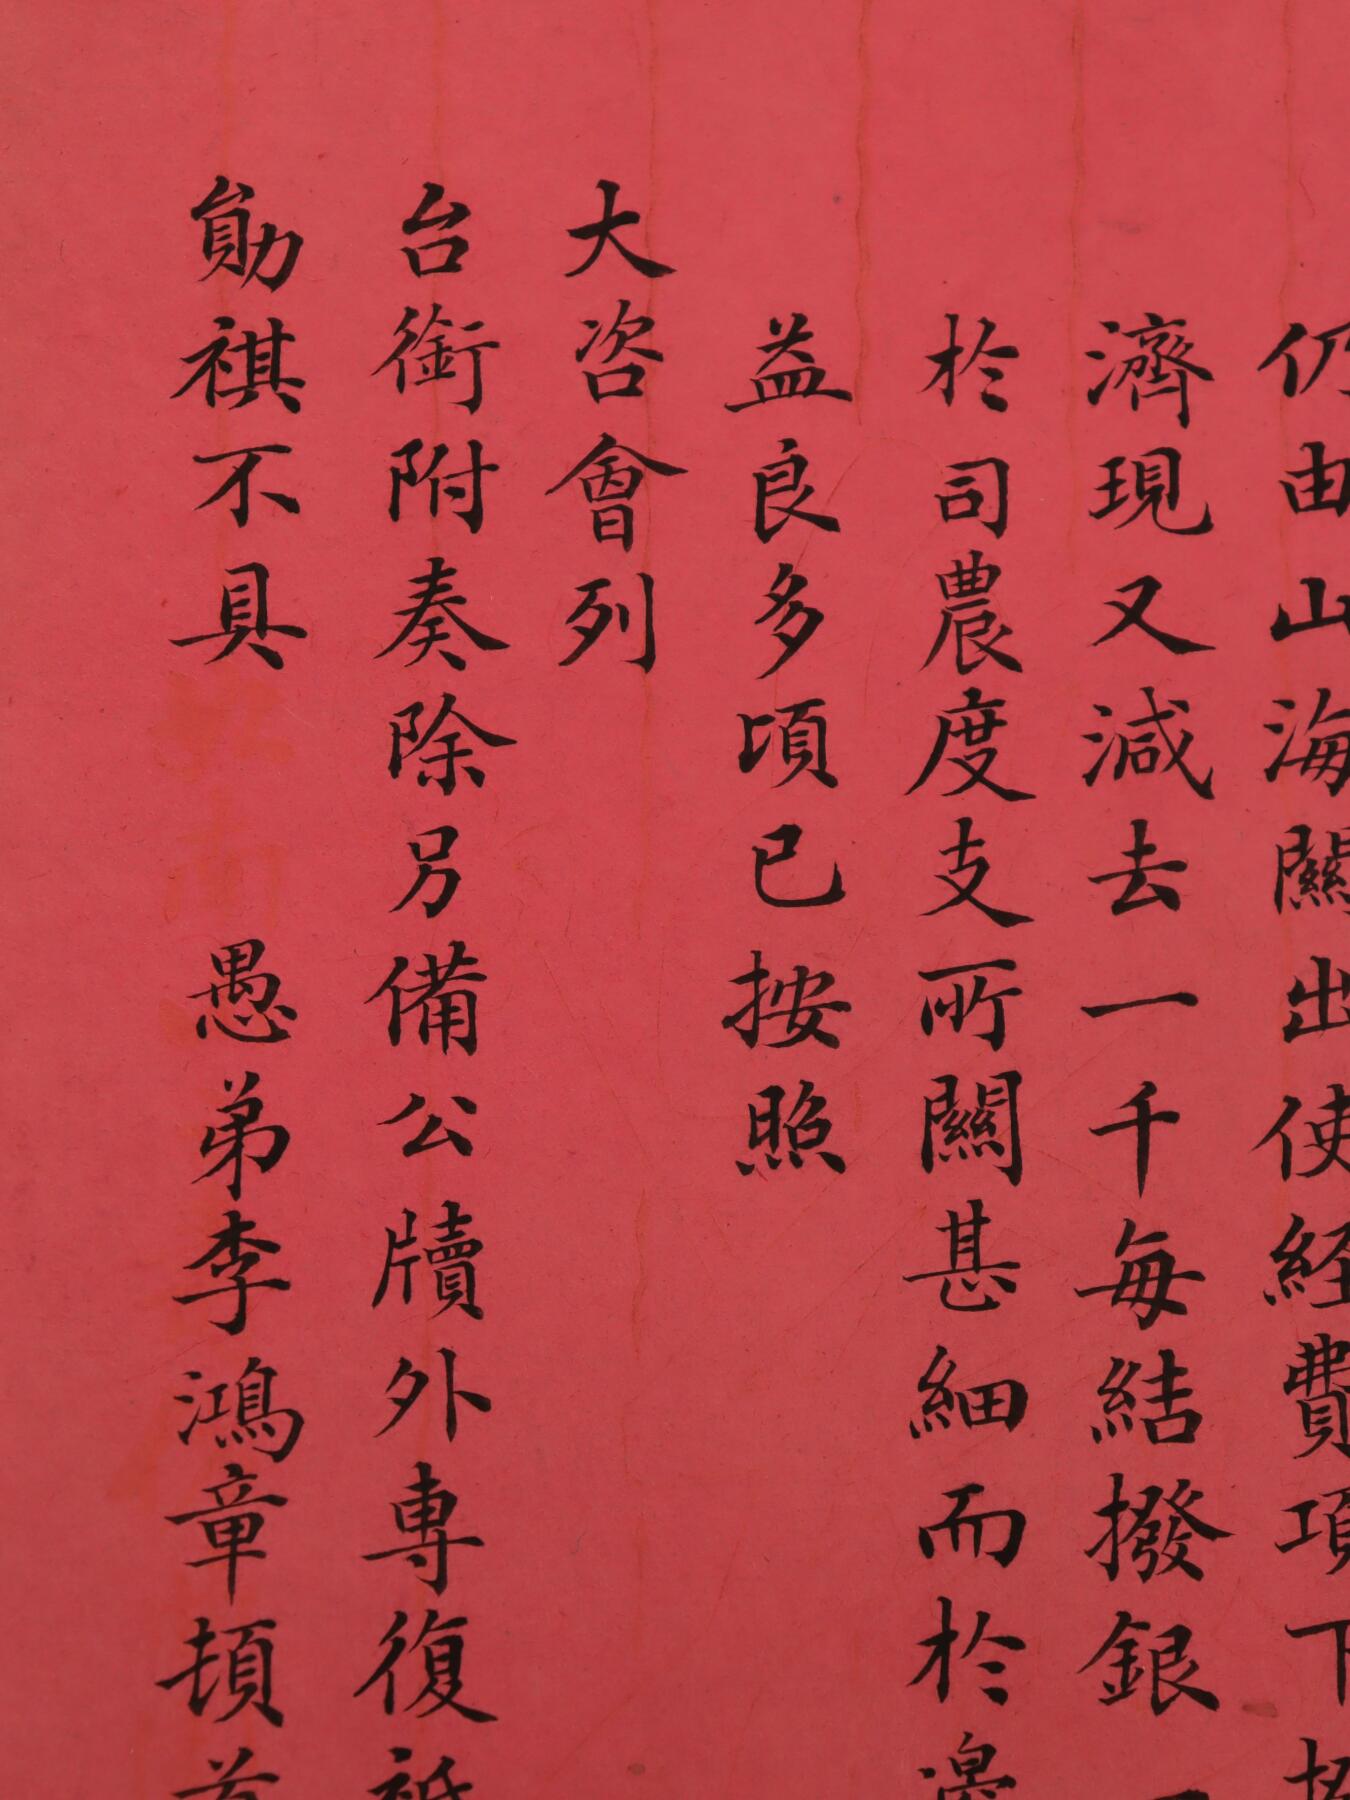 仍由山海關出使經費項下
濟現又減去一千每結撥銀
於司農度支所關甚細而於邊
益良多頃已按照
大咨會列
台銜附奏除另備公牘外專復祗
勛祺不具 愚弟李鴻章頓首